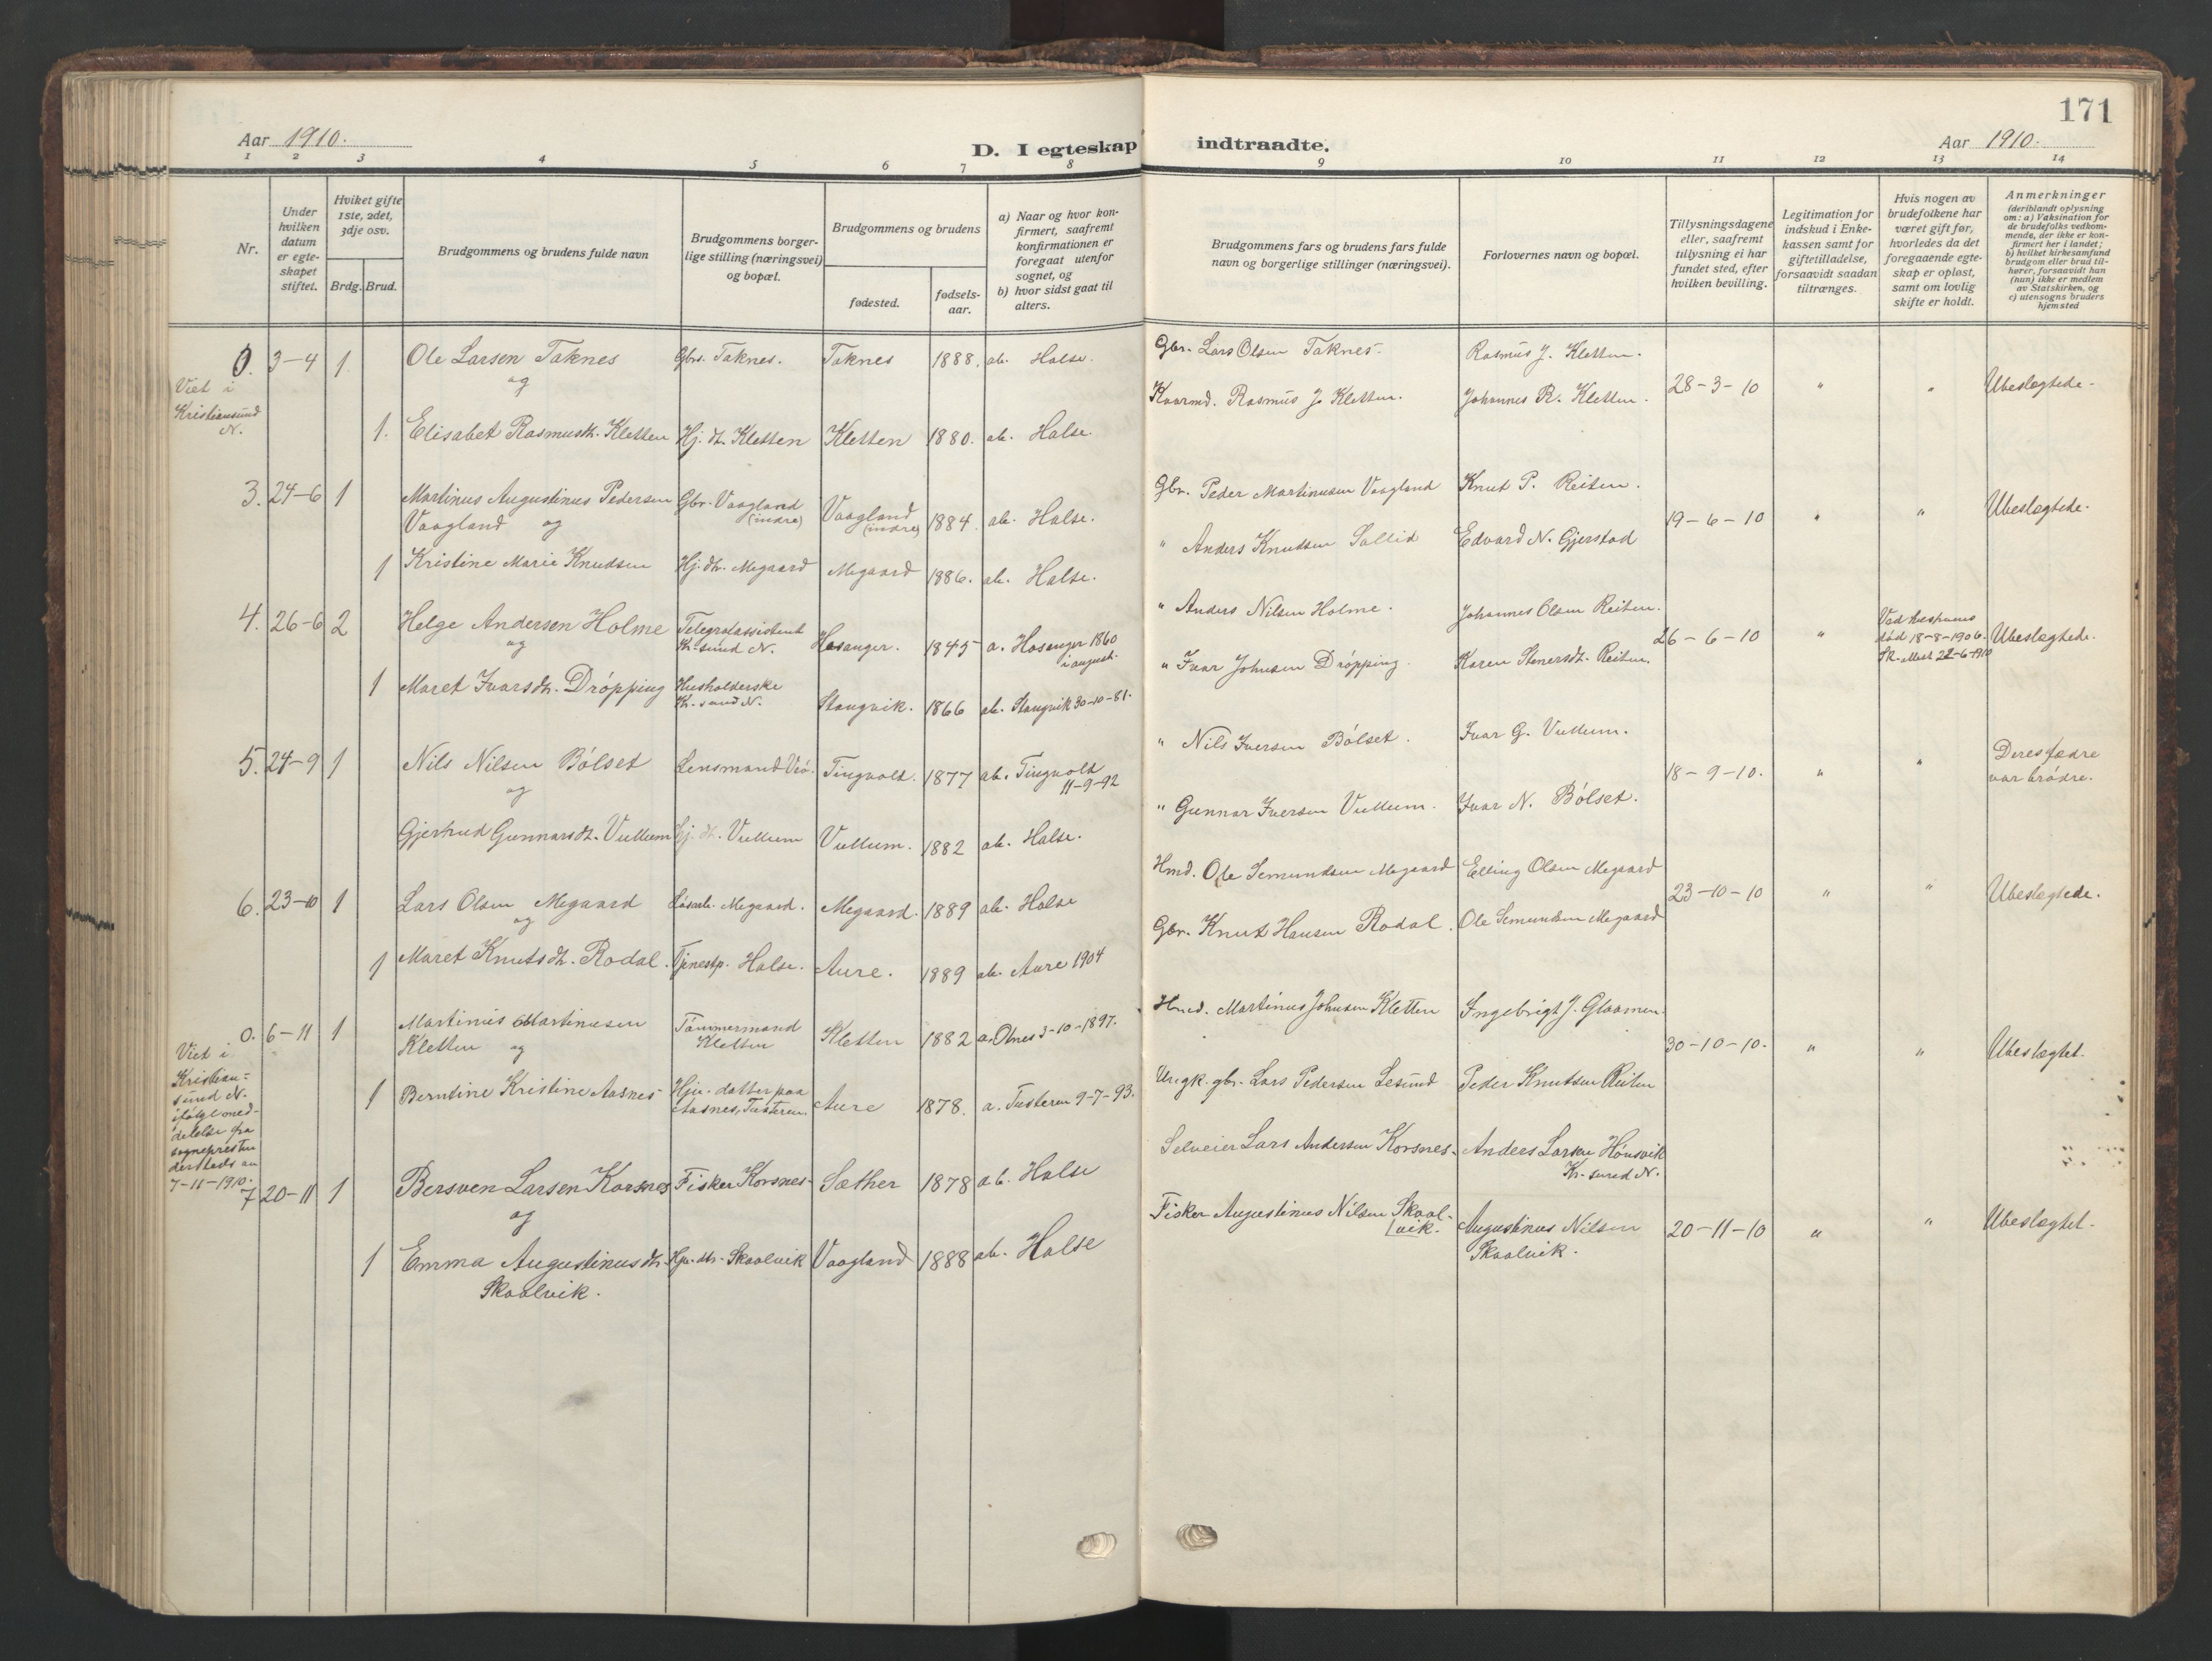 171
Aar 1910.
D. I egteskap indtraadte.
Aar 1910.
1 2 3 4 5 6 7 8 9 10 11 12 13 14
Nr.
Under hvilken datum er egteskapet stiftet.
Hviket gifte 1ste, 2det, 3dje osv.
Brdg. Brud.
Brudgommens og brudens fulde navn
Brudgommens borgerlige stilling (næringsvei) og bopæl.
Brudgommens og brudens
fødested.
fødselsaar.
a) Naar og hvor konfirmert, saafremt konfirmationen er foregaat utenfor sognet, og
b) hvor sidst gaat til alters.
Brudgommens fars og brudens fars fulde navn og borgerlige stillinger (næringsvei).
Forlovernes navn og bopæl.
Tillysningsdagene eller, saafremt tillysning ei har fundet sted, efter hvilken bevilling.
Legitimation for indskud i Enkekassen samt for giftetilladelse, forsaavidt saadan tiltrænges.
Hvis nogen av brudefolkene har været gift før, hvorledes da det foregaaende egteskap er opløst, samt om lovlig skifte er holdt.
Anmerkninger
(deriblandt oplysning om: a) Vaksination for de brudefolks vedkommende, der ikke er konfirmert her i landet;
b) hvilket kirkesamfund brudgom eller brud tilhører, forsaavidt han (hun) ikke er medlem av Statskirken, og
c) utensogns bruders hjemsted
0. 3-4 1 Ole Larsen Taknes Gbrs. Taknes. Taknes 1888. ab. Halse. Gbr. Lars Olsen Taknes. Rasmus J. Kletten.
Viet i Kristiansund N.
og
Kaarmd. Rasmus J. Kletten. Johannes R. Kletten. 28-3-10 " " Ubeslegtede.
1. Elisabet Rasmusdt. Kletten Hj. dt. Kletten Kletten 1880. ab. Halse.
3. 24-6 1 Martinus Augustinus Pedersen Gbr. Vaagland (indre) Vaagland (indre) 1884. ab. Halse. Gbr. Peder Martinusen Vaagland Knut P. Reiten.
Vaagland og
19-6-10 " " Ubeslegtede.
1 Kristine Marie Knudsen Hj. dtr. Megaard Megaard 1886. ab. Halse. " Anders Knudsen Edvard N. Gjerstad
4. 26-6 2 Helge Andersen Holme Telegrafassistent Kr. sund N. Hosanger. 1845 a. Hosanger 1860 i august. " Anders Nilsen Holme. Johannes Olsen Reiten.
og
26-6-10 " død 18-8-1906. 22-6-1910 Ubeslegtede.
1 Maret Ivarsdt. Dröpping Husholderske Kr. sund N. Stangvik. 1866 ab. Stangvik 30-10-81. " Ivar Johnsen Dröpping. Karen Stenersdt. Reiten.
5. 24-9 1 Nils Nilsen Bölset Lensmand Tingvold. 1877 ab. Tingvold 11-9-92 " Nils Iversen Bölset. Ivar G. Vullum.
og
18-9-10. " " Deres fædre var brödre.
Gjertrud Gunnarsdt. Vullum Hj. dt. Vullum Vullum. 1882 ab. Halse. " Gunnar Iversen Vullum. Ivar N. Bölset.
6. 23-10 1 Lars Olsen Megaard Megaard. Megaard. 1889 ab. Halse Hmd. Ole Semundsen Megaard Elling Olsen Megaard
og
23-10-10 " " Ubeslegtede.
1 Maret Knutsdt. Rodal. Tjenestp. Halse. Aure. 1889 ab. Aure 1904 Gbr. Knut Hansen Rodal. Ole Semundsen Megaard
0. 6-11 1 Martinus Martinusen Tömmermand Kletten 1882 a. Otnes 3-10-1897. Hmd. Martinus Johnsen Kletten Ingebrigt J. Glaamen.
Kletten og Kletten
Viet i Kristiansund N. ifölge meddelelse fra sognepresten dersteds av 7-11-1910.
30-10-10. " " Ubeslægtet.
1 Berntine Kristine Aasnes Hju. datter paa Aasnes, Tusteren. Aure 1878. a. Tusteren 9-7-93. gbr. Lars Pedersen Lesund Peder Knutsen Reiten
7 20-11 1 Bersven Larsen Korsnes Fisker Korsnes Sæther 1878 ab. Halse Selveier Lars Andersen Korsnes. Anders Larsen Hönsvik Kr. sund N.
og
1 Emma Augustinusdtr. Hju. dtr. Skaalvik Vaagland 1888 ab. Halse Fisker Augustinus Nilsen Skaalvik. Augustinus Nilsen 20-11-10 " " Ubeslægtet.
Skaalvik. Skaalvik.